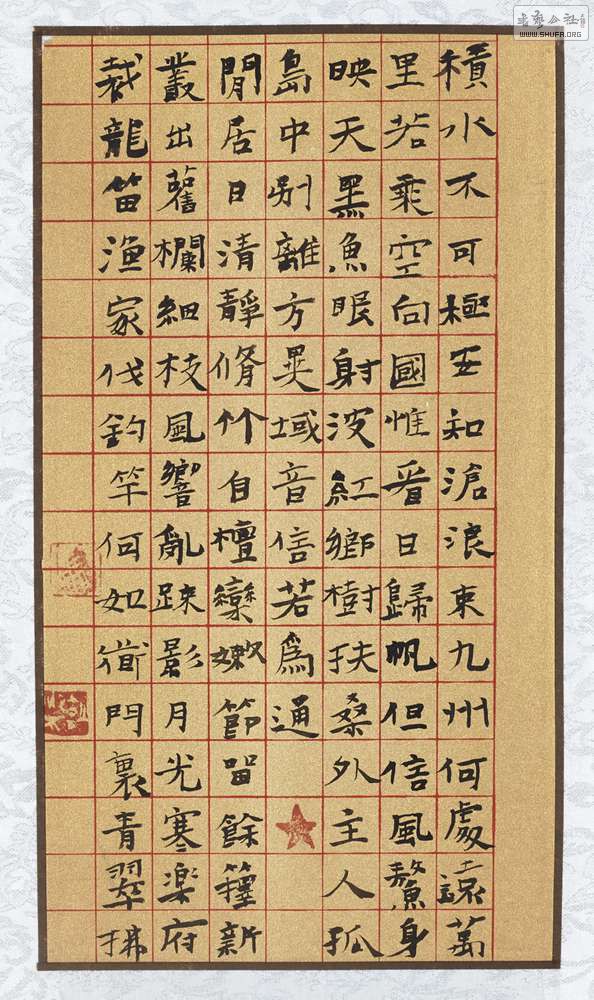 積水不可極安知滄浪東九州何處遠萬
里若乘空向國惟看日歸帆但信風鰲身
映天黑魚眼射波紅鄉樹扶桑外主人孤
島中別離方異域音信若爲通
閒居日清靜脩竹自檀欒嫩節留餘籜新
叢出舊欄細枝風響亂疎影月光寒樂府
裁龍笛漁家伐釣竿何如衜門裏青翠拂
書藝公社
WWW.SHUFA.ORG